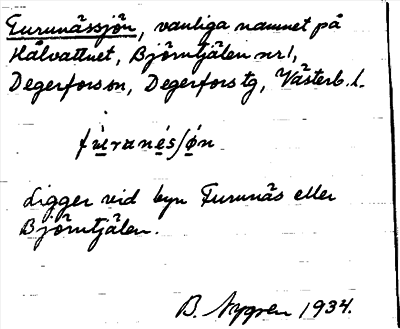 Furunässjön, vanliga namnet på
Hålvattnet, Björntjälen nr 1,
Degerfors sn, Degerfors tg, Västerb. l.
fùranesʃøn
Ligger vid byn Furunäs eller
Björntjälen.
B. Nygren 1934.